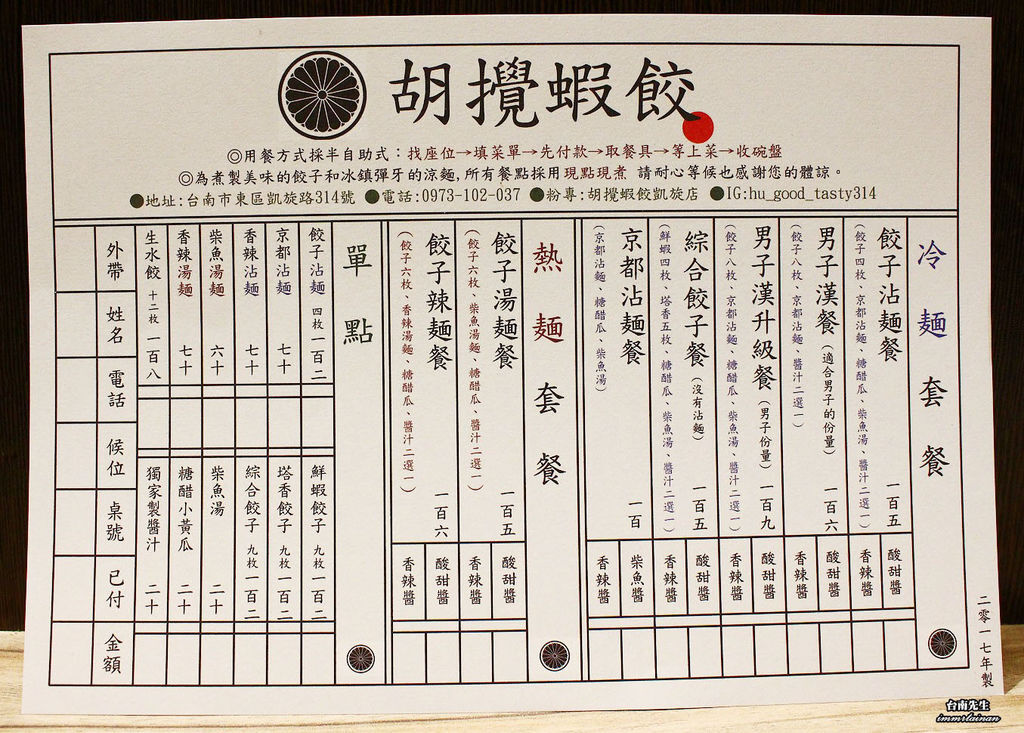 胡攪蝦餃
◎用餐方式採半自助式：找座位→填菜單→先付款→取餐具→等上菜→收碗盤
◎為煮製美味的餃子和冰鎮彈牙的涼麵,所有餐點採用現點現煮 請耐心等候也感謝您的體諒。
●地址:台南市東區凱旋路314號 ●電話:0973-102-037 ●粉專:胡攪蝦餃凱旋店 ●IG:hu_good_tasty314
冷麵套餐
餃子沾麵餐 一百五
(餃子四枚、京都沾麵、糖醋瓜、柴魚湯、醬汁二選一)
酸甜醬
香辣醬
男子漢餐(適合男子的份量) 一百六
(餃子八枚、京都沾麵、醬汁二選一)
酸甜醬
香辣醬
男子漢升級餐(男子份量) 一百九
(餃子八枚、京都沾麵、糖醋瓜、柴魚湯、醬汁二選一)
酸甜醬
香辣醬
綜合餃子餐(沒有沾麵) 一百五
(鮮蝦四枚、塔香五枚、糖醋瓜、柴魚湯、醬汁二選一)
酸甜醬
香辣醬
京都沾麵餐 一百
(京都沾麵、糖醋瓜、柴魚湯)
柴魚醬
香辣醬
熱麵套餐
餃子湯麵餐 一百五
(餃子六枚、柴魚湯麵、糖醋瓜、醬汁二選一)
酸甜醬
香辣醬
餃子辣麵餐 一百六
(餃子六枚、香辣湯麵、糖醋瓜、醬汁二選一)
酸甜醬
香辣醬
單點
餃子沾麵 四枚 一百二
京都沾麵 七十
香辣沾麵 七十
柴魚湯麵 六十
香辣湯麵 七十
生水餃 十二枚 一百八
鮮蝦餃子 九枚 一百二
塔香餃子 九枚 一百二
綜合餃子 九枚 一百二
柴魚湯 二十
糖醋小黃瓜 二十
獨家製醬汁 二十
外帶
姓名
電話
候位
桌號
已付
金額
二零一七年製
台南先生
immrtainan